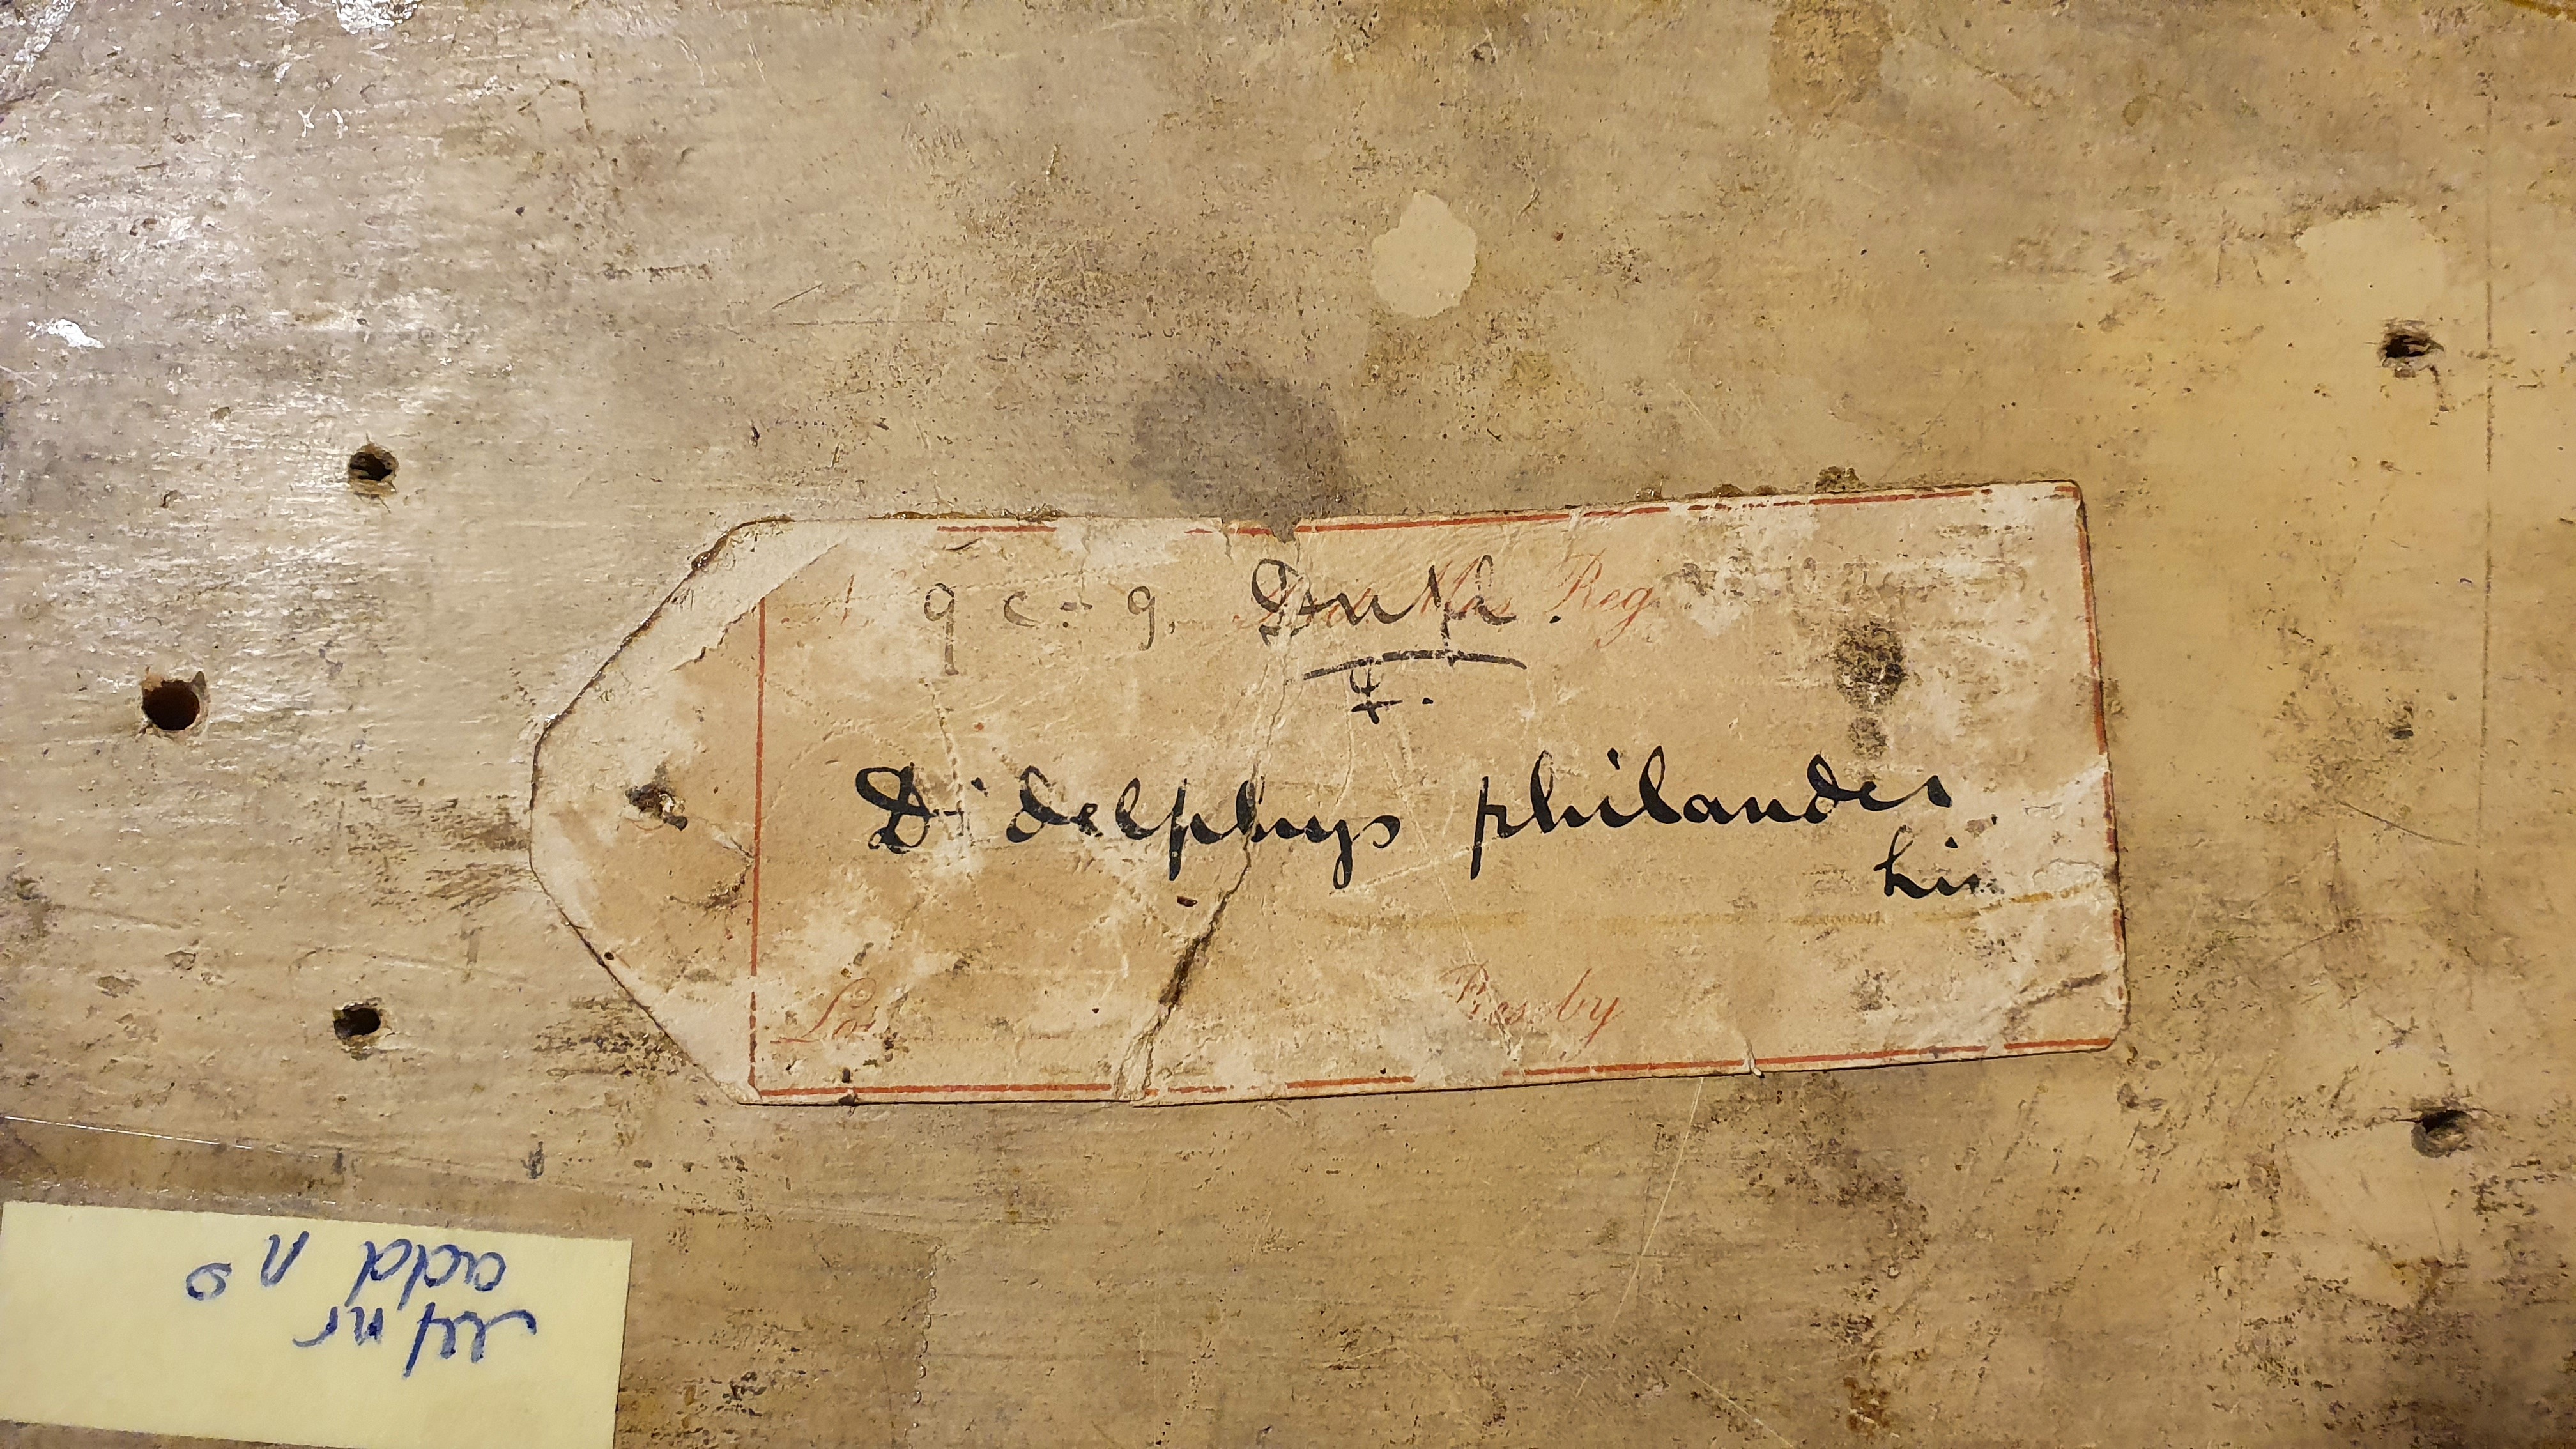 9 c - g. Dupl. Reg
♀.
Didelphys philander
Lin
Loc Pres. by
add no